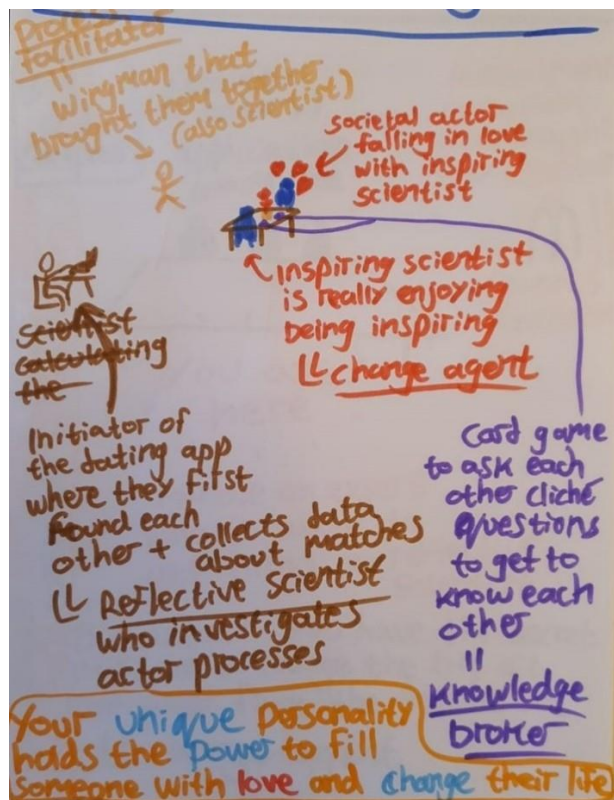 Process
facilitator
||
wingman that
brought them together
(also scientist)
societal actor
falling in love
with inspiring
scientist
inspiring scientist
is really enjoying
being inspiring
change agent
scientist
calculating
the
Initiator of
the dating app
where they first
found each
other + collects data
about matches
Reflective Scientist
who investigates
actor processes
Card game
to ask each
other cliché
questions
to get to
know each
other
||
knowledge
broker
Your unique personality
holds the power to fill
someone with love and change their life